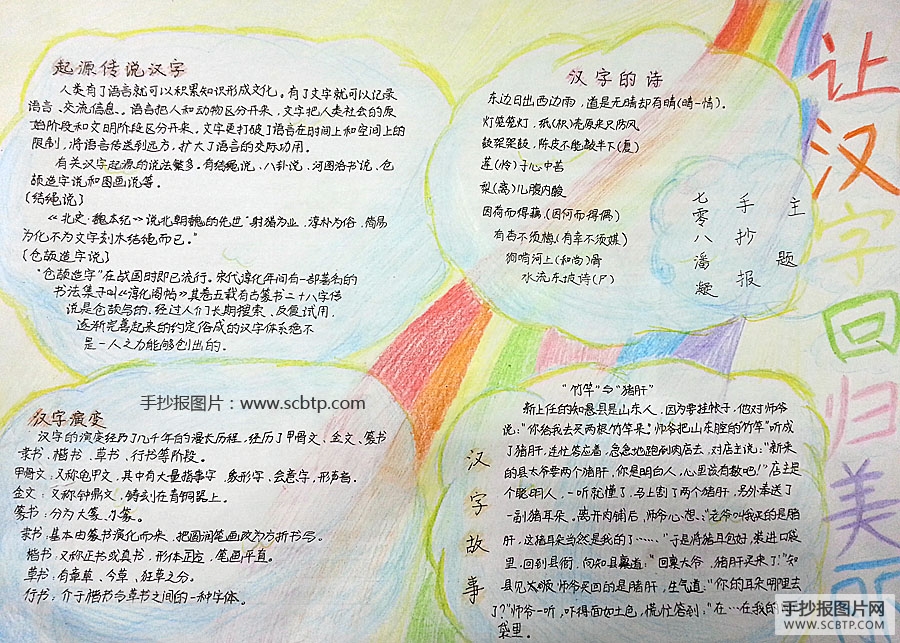 起源传说汉字
人类有了语言就可以积累知识形成文化。有了文字就可以记录
语言、交流信息。语言把人和动物区分开来，文字把人类社会的原
始阶段和文明阶段区分开来，文字更打破了语言在时间上和空间上的
限制，将语言传送到远方，扩大了语言的交际功用。
有关汉字起源的说法繁多。有结绳说、八卦说、河图洛书说、仓
颉造字说和图画说等。
(结绳说)
《北史·魏本纪》说北朝魏的先世“射猎为业，淳朴为俗，简易
为化不为文字刻木结绳而已。”
(仓颉造字说)
“仓颉造字”在战国时即已流行。宋代淳化年间有一部著名的
书法集子叫《淳化阁帖》其卷五载有古篆书二十八字传
说是仓颉写的。经过人们长期搜索、反复试用，
逐渐完善起来的约定俗成的汉字体系绝不
是一人之力能够创出的。
汉字的诗
东边日出西边雨，道是无晴却有晴(晴-情)。
灯笼笼灯，纸(枳)壳原来只防风
鼓架架鼓，陈皮不能敲半下(夏)
莲(怜)子心中苦
梨(离)儿腹内酸
因荷而得藕，(因何而得偶)
有杏不须梅，(有幸不须媒)
狗啃河上(和尚)骨
水流东坡诗(尸)
主题
手抄报
七零八潘凝
让汉字回归美丽
手抄报图片：www.scbtp.com
汉字演变
汉字的演变经历了几千年的漫长历程，经历了甲骨文、金文、篆书
隶书、楷书、草书、行书等阶段。
甲骨文：又称龟甲文，其中有大量指事字、象形字、会意字，形声字。
金文：又称钟鼎文，铸刻在青铜器上。
篆书：分为大篆、小篆。
隶书：基本由篆书演化而来、把圆润笔画改为方折书写。
楷书：又称正书或真书，形体正方，笔画平直。
草书：有章草、今草、狂草之分。
行书：介于楷书与草书之间的一种字体。
汉字故事
“竹竿”与“猪肝”
新上任的知县是山东人，因为要挂帐子，他对师爷
说：“你给我去买两根竹竿来。”师爷把山东腔的“竹竿”听成
了猪肝，连忙答应着，急急地跑到肉店去，对店主说：“新来
的县太爷要两个猪肝，你是明白人，心里该有数吧！”店主是
个聪明人，一听就懂了，马上割了两个猪肝，另外奉送了
一副猪耳朵。离开肉铺后，师爷心想：“老爷叫我买的是猪
肝，这猪耳朵当然是我的了……”于是将猪耳包好，装进口袋
里。回到县衙，向知县禀道：“回禀大爷，猪肝买来了！”知
县见大师爷买回的是猪肝，生气道：“你的耳朵哪里去
了？”师爷一听，吓得面如土色，慌忙答到：“在…在我的
袋里。
手抄报图片网
WWW.SCBTP.COM